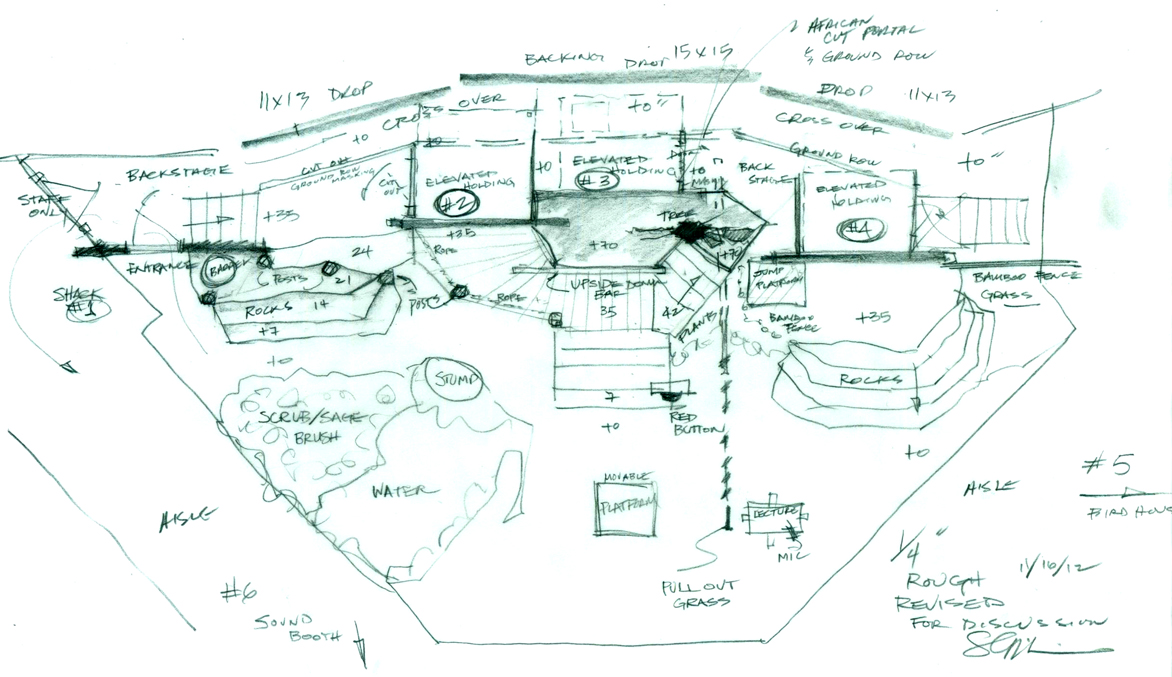 AFRICAN
CUT PORTAL
& GROUND ROW
BACKING DROP 15X15
11X13 DROP
DROP 11X13
CROSS OVER
+0"
CROSS OVER
+0
+0
GROUND ROW
+0"
BACKSTAGE
CUT OUT
GROUND ROW
MASKING
CUT
OUT
ELEVATED
HOLDING
#2
+0
ELEVATED
HOLDING
#3
+0
BACK
STAGE
ELEVATED
HOLDING
#4
STAFF
ONLY
+35
+35
TREE
+70
+70
ENTRANCE
24
ROPE
POSTS
21
UPSIDE DOWN
BAR
35
42
JUMP
PLATFORM
BAMBOO FENCE
GRASS
SHACK
#1
ROCKS 14
+7
POSTS
ROPE
PLANTS
BAMBOO
FENCE
+35
+0
STUMP
ROCKS
7
RED
BUTTON
+0
+0
SCRUB/SAGE
BRUSH
WATER
MOVABLE
PLATFORM
LECTURE
MIC
AISLE
AISLE
#5
BIRD HOUS
PULL OUT
GRASS
#6
SOUND
BOOTH
1/4"
ROUGH
REVISED
FOR DISCUSSION
11/16/12